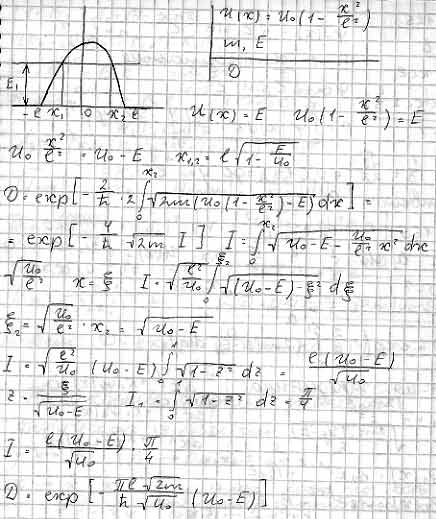 U(x) = U₀(1 - x²/ℓ²)
m, E
D
E₁
-ℓ x₁ 0 x₂ ℓ
U(x) = E U₀(1 - x²/ℓ²) = E
U₀ x²/ℓ² = U₀ - E x₁,₂ = ℓ√(1 - E/U₀)
D = exp[-2/ħ · 2∫₀^x₂ √(2m(U₀(1 - x²/ℓ²) - E)) dx] =
= exp[-4/ħ √2m I] I = ∫₀^x₂ √(U₀ - E - U₀/ℓ² x²) dx
√(U₀/ℓ²) x = ξ I = √(ℓ²/U₀) ∫₀^ξ₂ √((U₀ - E) - ξ²) dξ
ξ₂ = √(U₀/ℓ²) · x₂ = √(U₀ - E)
I = √(ℓ²/U₀) (U₀ - E) ∫₀¹ √(1 - z²) dz = ℓ(U₀ - E)/√U₀
z = ξ/√(U₀ - E) I₁ = ∫₀¹ √(1 - z²) dz = π/4
I = ℓ(U₀ - E)/√U₀ · π/4
D = exp[-πℓ√2m/ħ√U₀ (U₀ - E)]